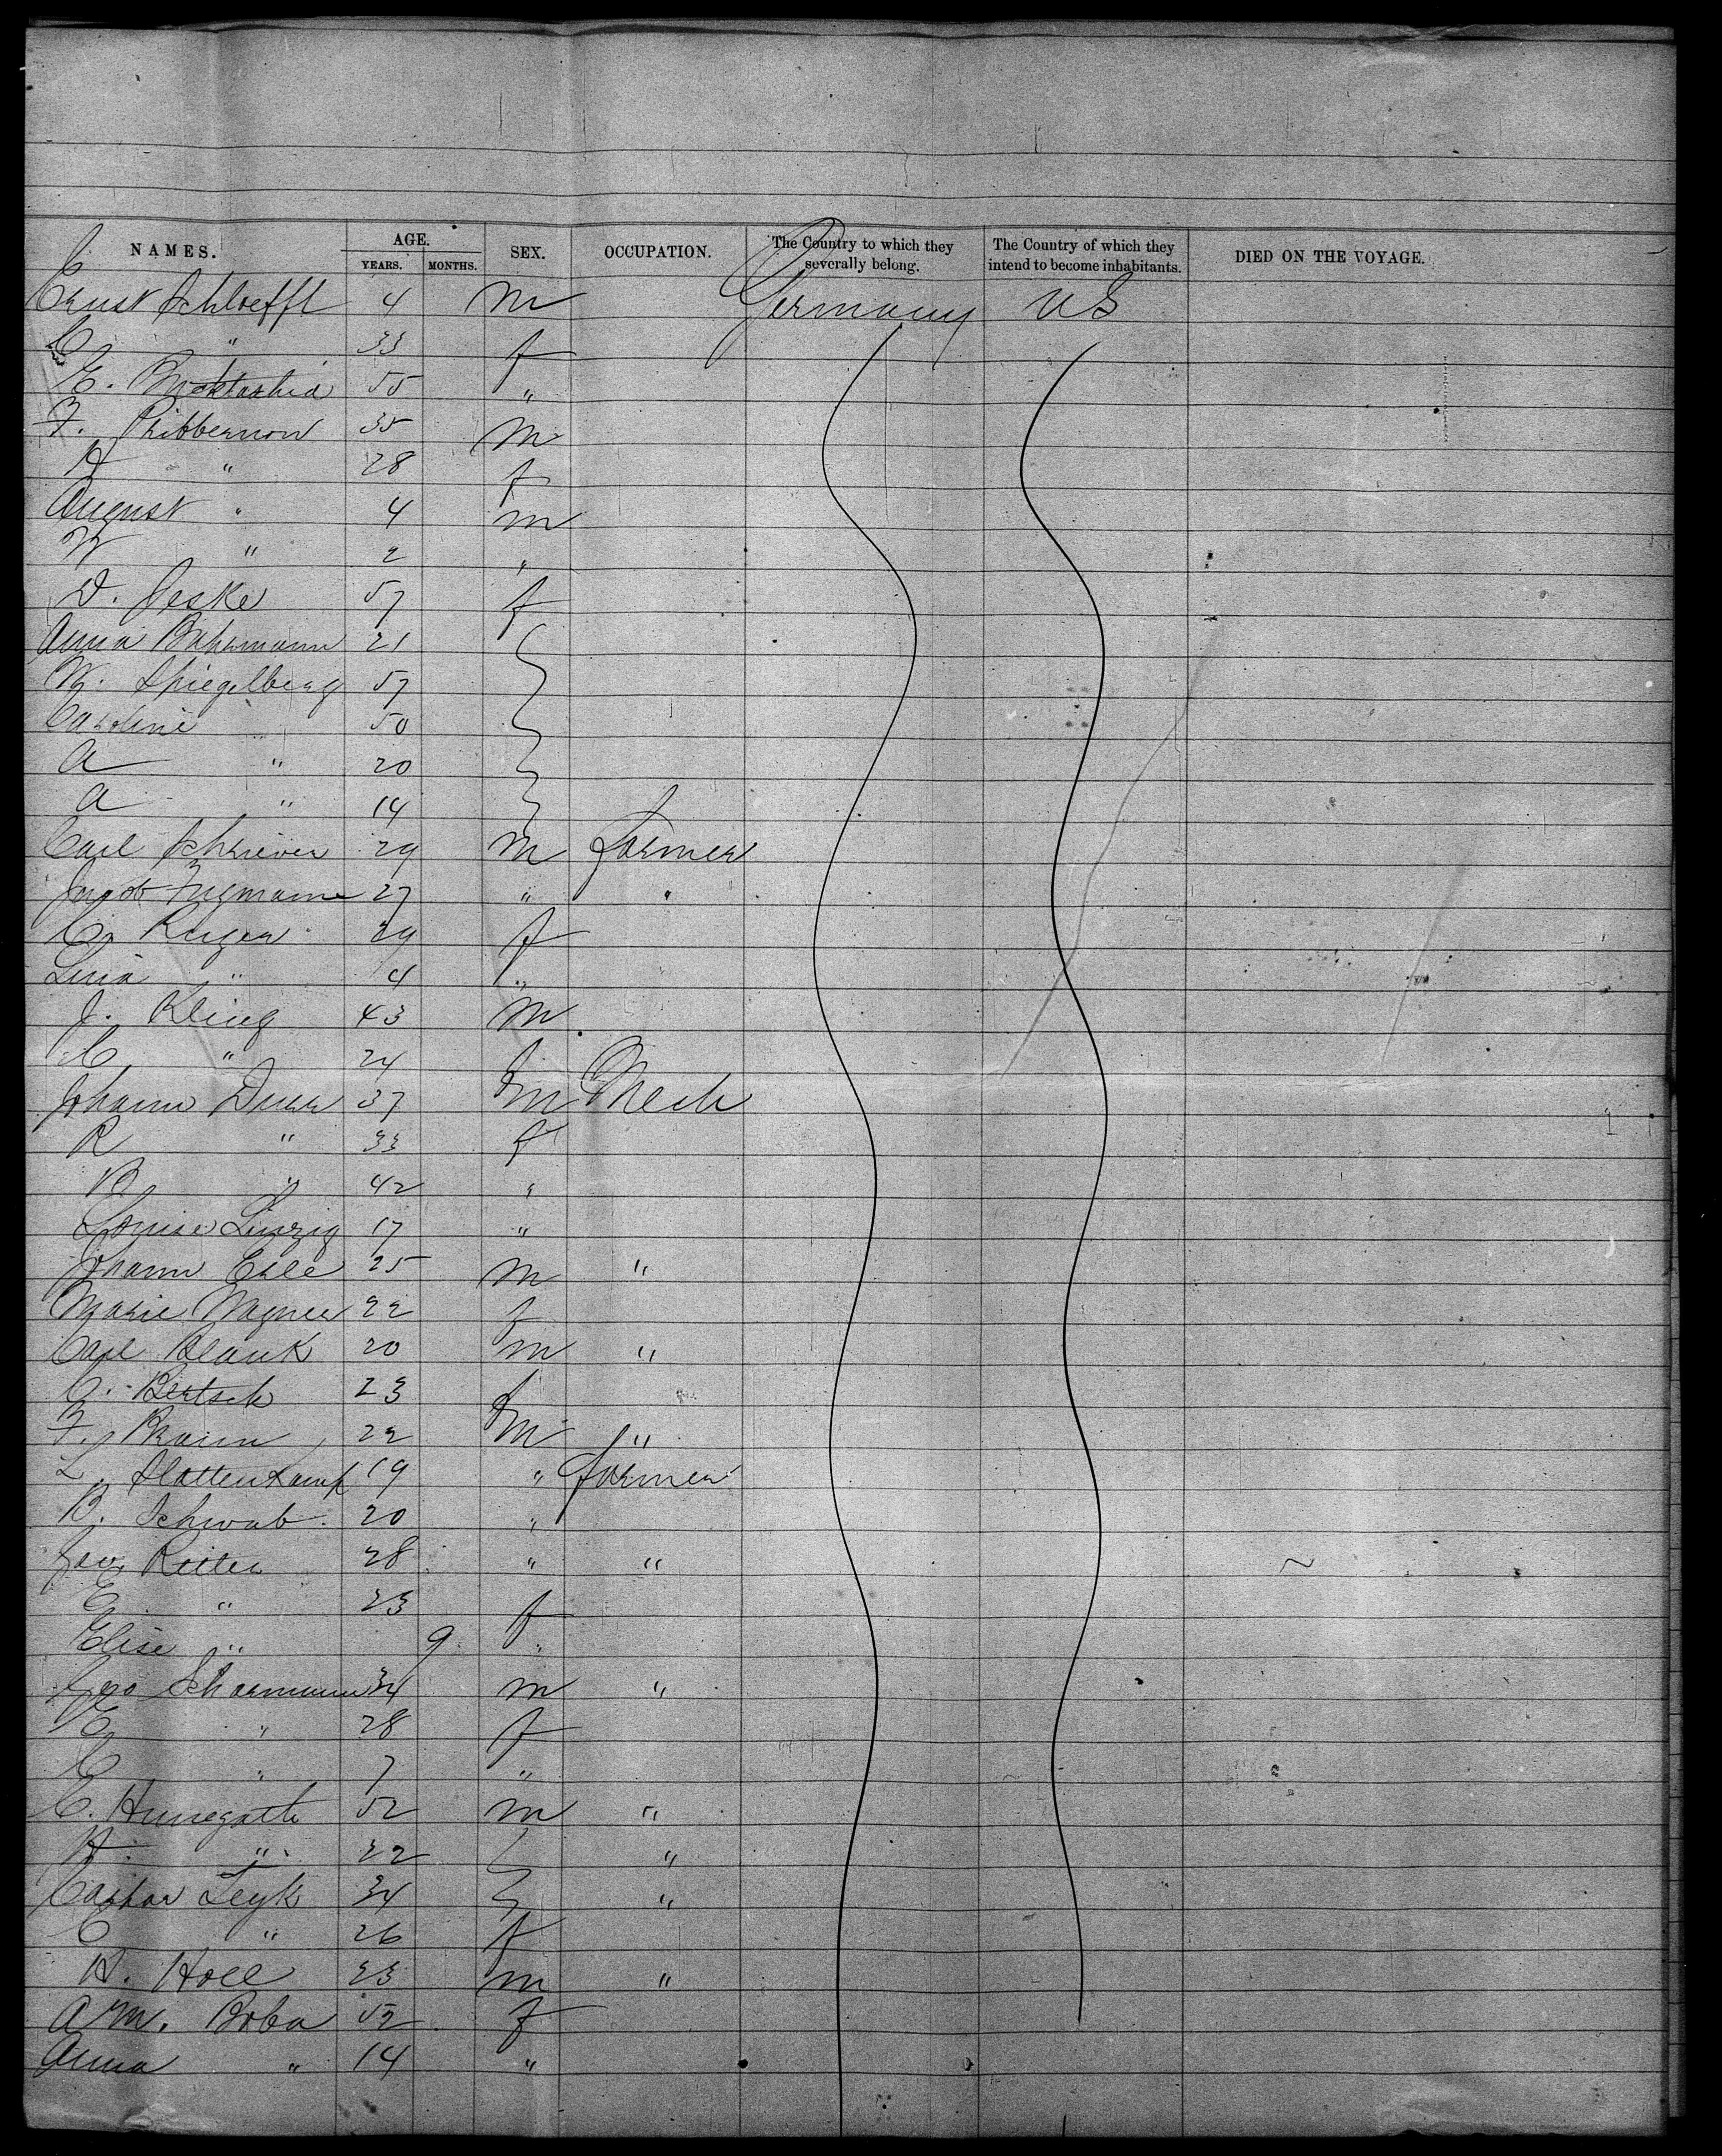 NAMES. AGE. SEX. OCCUPATION. The Country to which they severally belong. The Country of which they intend to become inhabitants. DIED ON THE VOYAGE.
YEARS. MONTHS.
Ernst Schloefft 4 m Germany US
C " 33 f
E. 55 "
F. Pribbernow 35 m
H " 28 f
August " 4 m
W " 2 "
D. Jeske 57 f
Anna Bahrmann 21
W. Spiegelberg 57
Caroline 50
A " 20
A " 14
Carl Schriever 29 m farmer
Jacob 27 " "
C. 29 f
Lina " 4 "
J. Kling 43 m
C " 24 f
Johann Durr 37 m Mech
R " 33 f
B " 42 "
Louise Linzig 17 "
Johann Erle 25 m "
Marie Wagner 22 f
Carl Blank 20 m "
C. Bertsch 23 f
F. Braun 22 m "
L. Slottenkamp 19 " farmer
B. Schwab 20 "
Geo Ritter 28 " "
E " 23 f
Elise " 9 "
Geo Scharmann 34 m "
E " 28 f
C " 7 "
C. Hunegarth 52 m "
H. " 22 "
Caspar Leyk 34 "
C " 26 f
H. Holl 23 m "
A M. Boba 52 f
Anna " 14 "